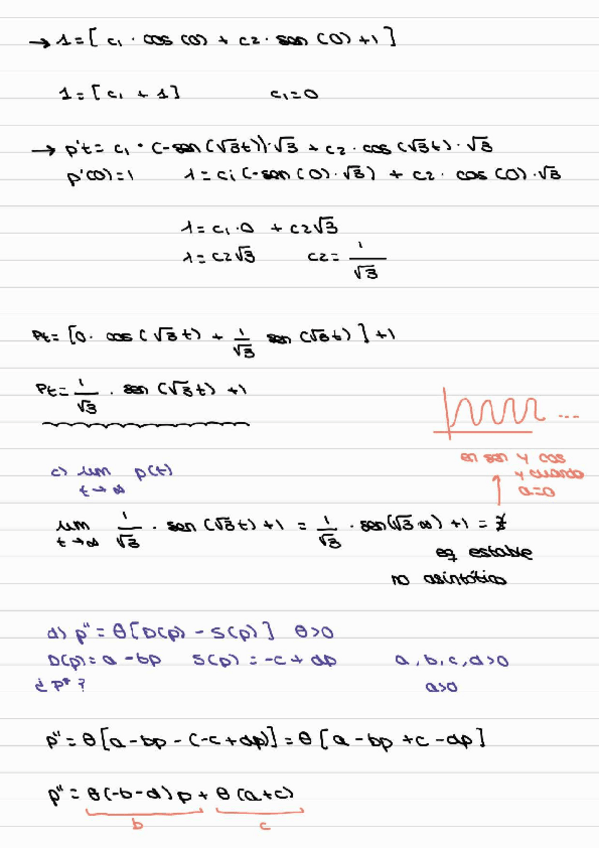 → 1=[ c₁ · cos (0) + c2 · sen (0) +1 ]
1=[ c₁ + 1]   c₁=0
→ p't= c₁ · (-sen(√3t))·√3 + c2 · cos(√3t) · √3
p'(0)=1   1= c₁(-sen(0)·√3) + c2 · cos(0)·√3
1= c₁·0 + c2√3
1= c2√3   c2= 1/√3
Pt= [0· cos(√3t) + 1/√3 sen(√3t)] +1
Pt= 1/√3 · sen(√3t) +1
...
en sen y cos
y cuando
a=0
c) lim p(t)
t→∞
lim 1/√3 · sen(√3t)+1 = 1/√3 · sen(√3∞)+1 = ∄
t→∞
eq estable
no asintótico
d) p''= θ[D(p) - S(p)]   θ>0
D(p)= a - bp   S(p)= -c + dp   a,b,c,d>0
¿P*?   a>0
p''= θ[a-bp-(-c+dp)]= θ[a-bp+c-dp]
p''= θ(-b-d)p + θ(a+c)
b   c